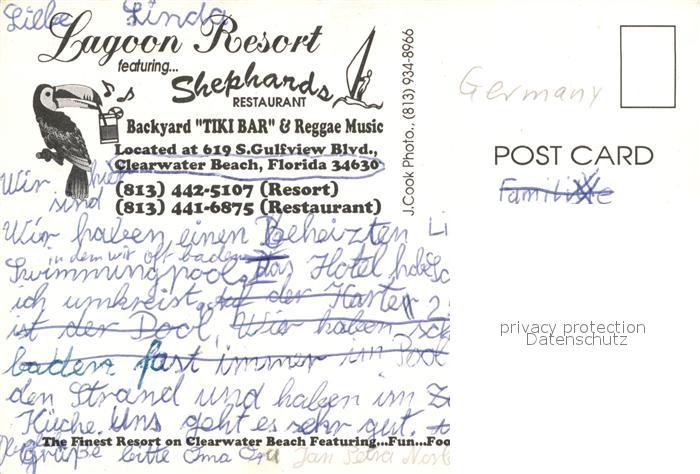 Liebe Linda
Lagoon Resort
featuring...
Shephards
RESTAURANT
Backyard "TIKI BAR" & Reggae Music
Located at 619 S.Gulfview Blvd.,
Clearwater Beach, Florida 34630
Wir sind hier
(813) 442-5107 (Resort)
(813) 441-6875 (Restaurant)
Wir haben einen Beheizten
in dem wir oft baden
Swimmingpool. Das Hotel habe
ich umkreist. auf der Karte
ist der Pool, Wir haben
baden fast immer im Pool
den Strand und haben im
Küche. Uns geht es sehr gut.
The Finest Resort on Clearwater Beach Featuring...Fun...Foo
Grüße bitte Oma Jan Petra
J.Cook Photo., (813) 934-8966
Germany
POST CARD
Familie
privacy protection
Datenschutz